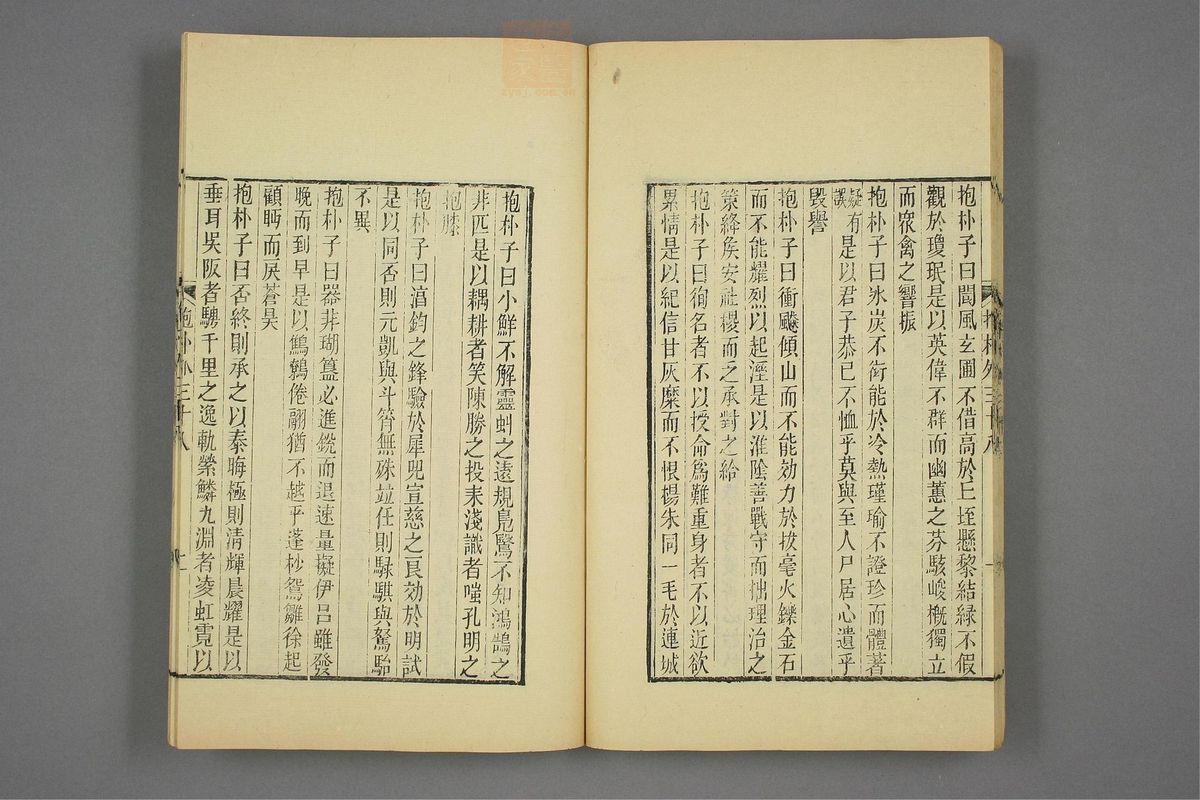 抱朴子曰閬風玄圃不借高於丘垤懸黎結緑不假
觀於瓊珉是以英偉不群而幽蕙之芬駭峻概獨立
而衆禽之響振
抱朴子曰氷炭不衒能於冷熱瑾瑜不證珍而體著
疑有誤是以君子恭已不恤乎莫與至人尸居心遺乎
毀譽
抱朴子曰衝飈傾山而不能効力於拔毫火鑠金石
而不能耀烈以起溼是以淮陰善戰守而拙理治之
策絳侯安社稷而乏承對之給
抱朴子曰徇名者不以授命爲難重身者不以近欲
累情是以紀信甘灰糜而不恨楊朱同一毛於連城
抱朴子曰小鮮不解靈虯之遠規鳧鷖不知鴻鵠之
非匹是以耦耕者笑陳勝之投耒淺識者嗤孔明之
抱膝
抱朴子曰淯鈞之鋒驗於犀兕宣慈之良効於明試
是以同否則元凱與斗筲無殊竝任則騄騏與駑駘
不異
抱朴子曰器非瑚簋必進銳而退速量擬伊呂雖發
晚而到早是以鷦鷯倦翮猶不越乎蓬杪鴛雛徐起
顧眄而戾蒼昊
抱朴子曰否終則承之以泰晦極則清輝晨耀是以
垂耳吳阪者騁千里之逸軌縈鱗九淵者凌虹霓以
抱朴外三十八